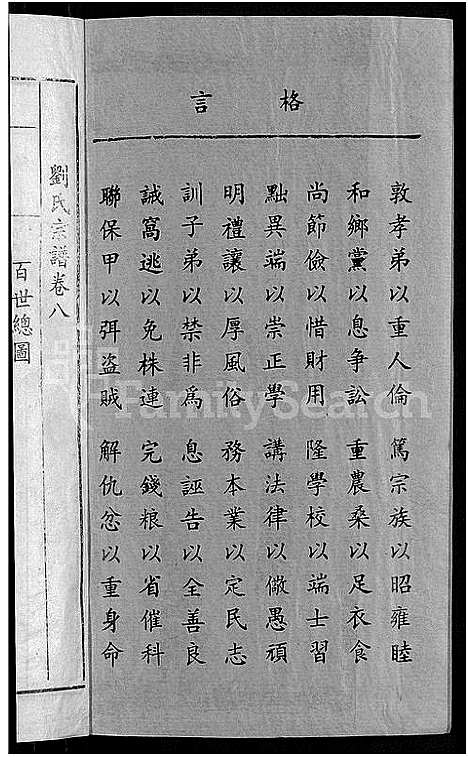 格言
敦孝弟以重人倫 篤宗族以昭雍睦
和鄉黨以息爭訟 重農桑以足衣食
尚節儉以惜財用 隆學校以端士習
黜異端以崇正學 講法律以儆愚頑
明禮讓以厚風俗 務本業以定民志
訓子弟以禁非為 息誣告以全善良
誡窩逃以免株連 完錢粮以省催科
聯保甲以弭盜賊 解仇忿以重身命
劉氏宗譜卷八
百世總圖
FamilySearch